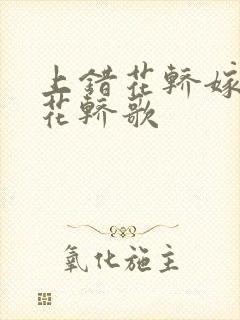 上错花轿嫁
花轿歌
氧化施主